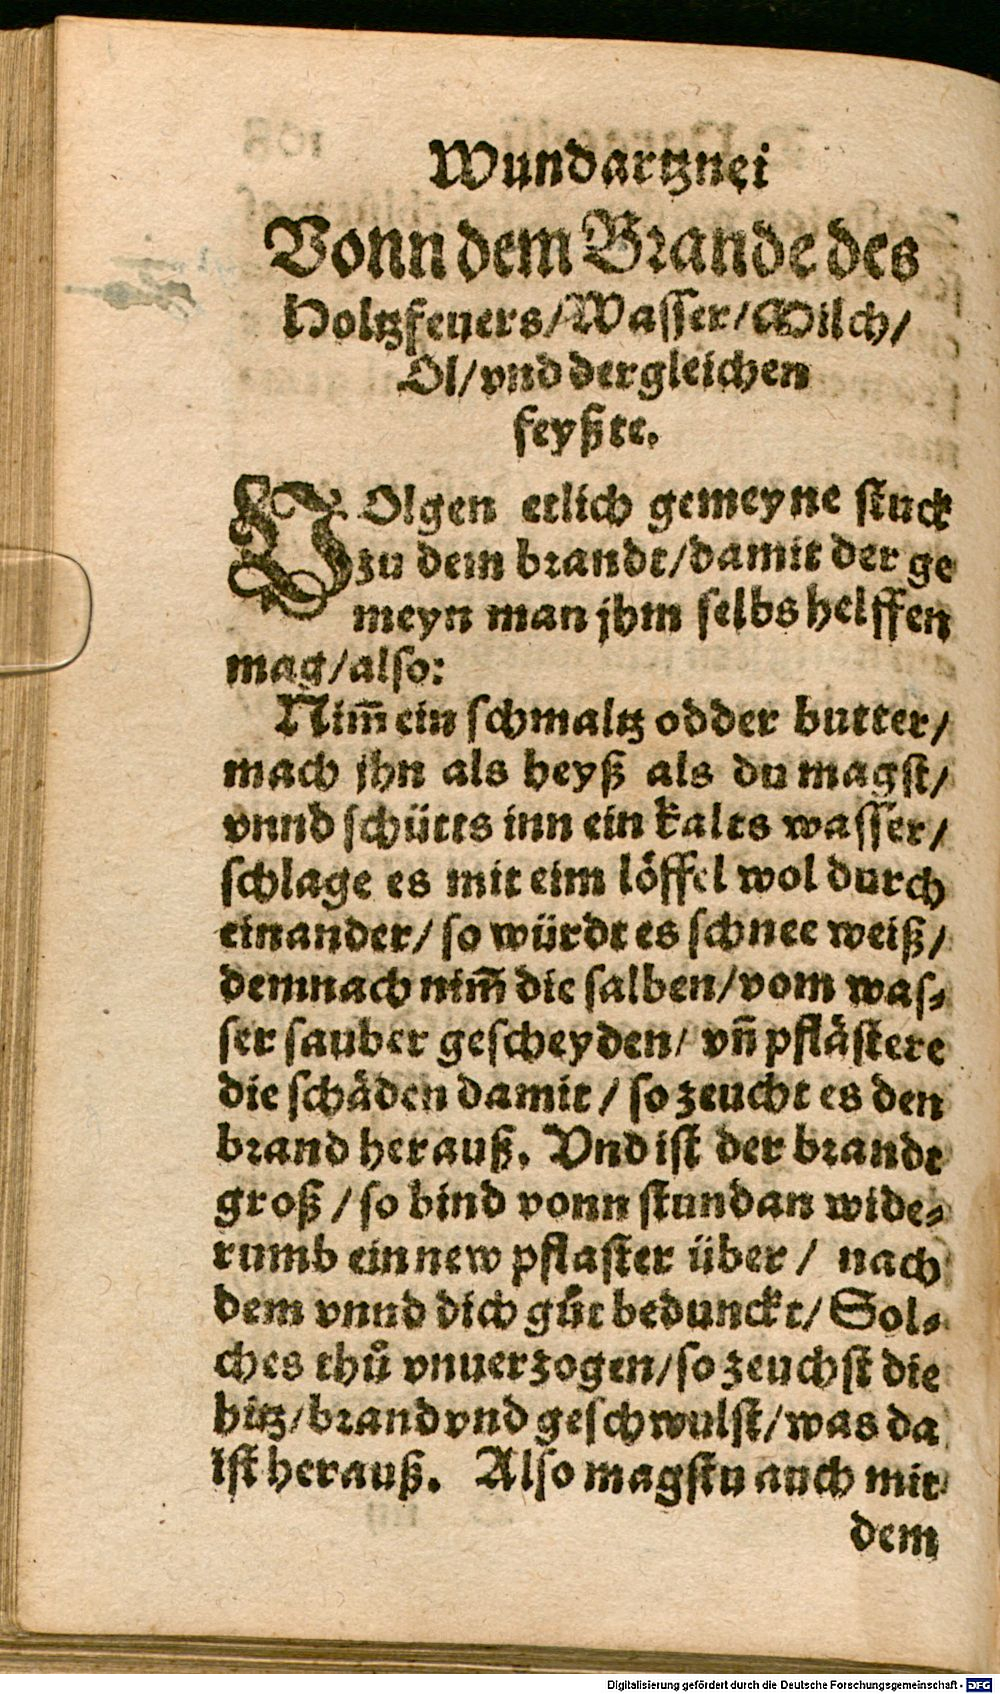 Wundartznei
Vonn dem Brande des
Holtzfeuers/Wasser/Milch/
Ol/vnd dergleichen
feyßte.
VOlgen etlich gemeyne stuck
zu dem brandt/damit der ge
meyn man jhm selbs helffen
mag/also:
Nim̄ ein schmaltz odder butter/
mach jhn als heyß als du magst/
vnnd schütts inn ein kalts wasser/
schlage es mit eim löffel wol durch
einander/so würdt es schnee weiß/
demnach nim̄ die salben/vom was⸗
ser sauber gescheyden/ vn̄ pflästere
die schäden damit/so zeucht es den
brand herauß. Vnd ist der brandt
groß/so bind vonn stundan wide⸗
rumb ein new pflaster über/ nach
dem vnnd dich gůt bedunckt/Sol⸗
ches thů vnuerzogen/so zeuchst die
hitz/brand vnd geschwulst/was da
ist herauß. Also magstu auch mit
dem
Digitalisierung gefördert durch die Deutsche Forschungsgemeinschaft - DFG